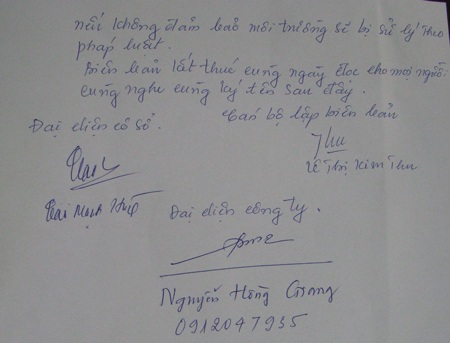 nếu không đảm bảo môi trường sẽ bị sử lý theo
pháp luật.
Biên bản kết thúc cùng ngày đọc cho mọi người
cùng nghe cùng ký tên sau đây.
Đại diện cơ sở.
Cán bộ lập biên bản
Thu
Lê Thị Kim Thu
Mạnh
Đại diện công ty.
Nguyễn Hồng Giang
0912047935